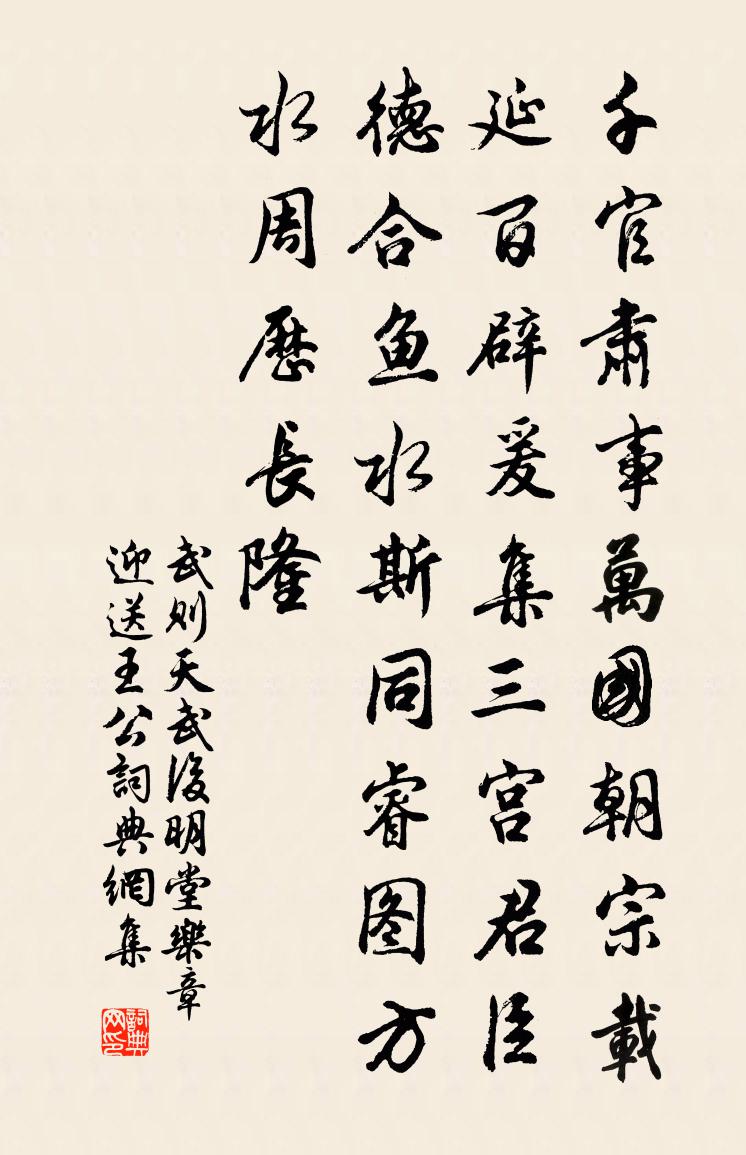 千官肅事萬國朝宗載
延百辟爰集三宮君臣
德合鱼水斯同睿图方
水周歷長隆
武则天武後明堂樂章
迎送王公詞典網集
詞典网印